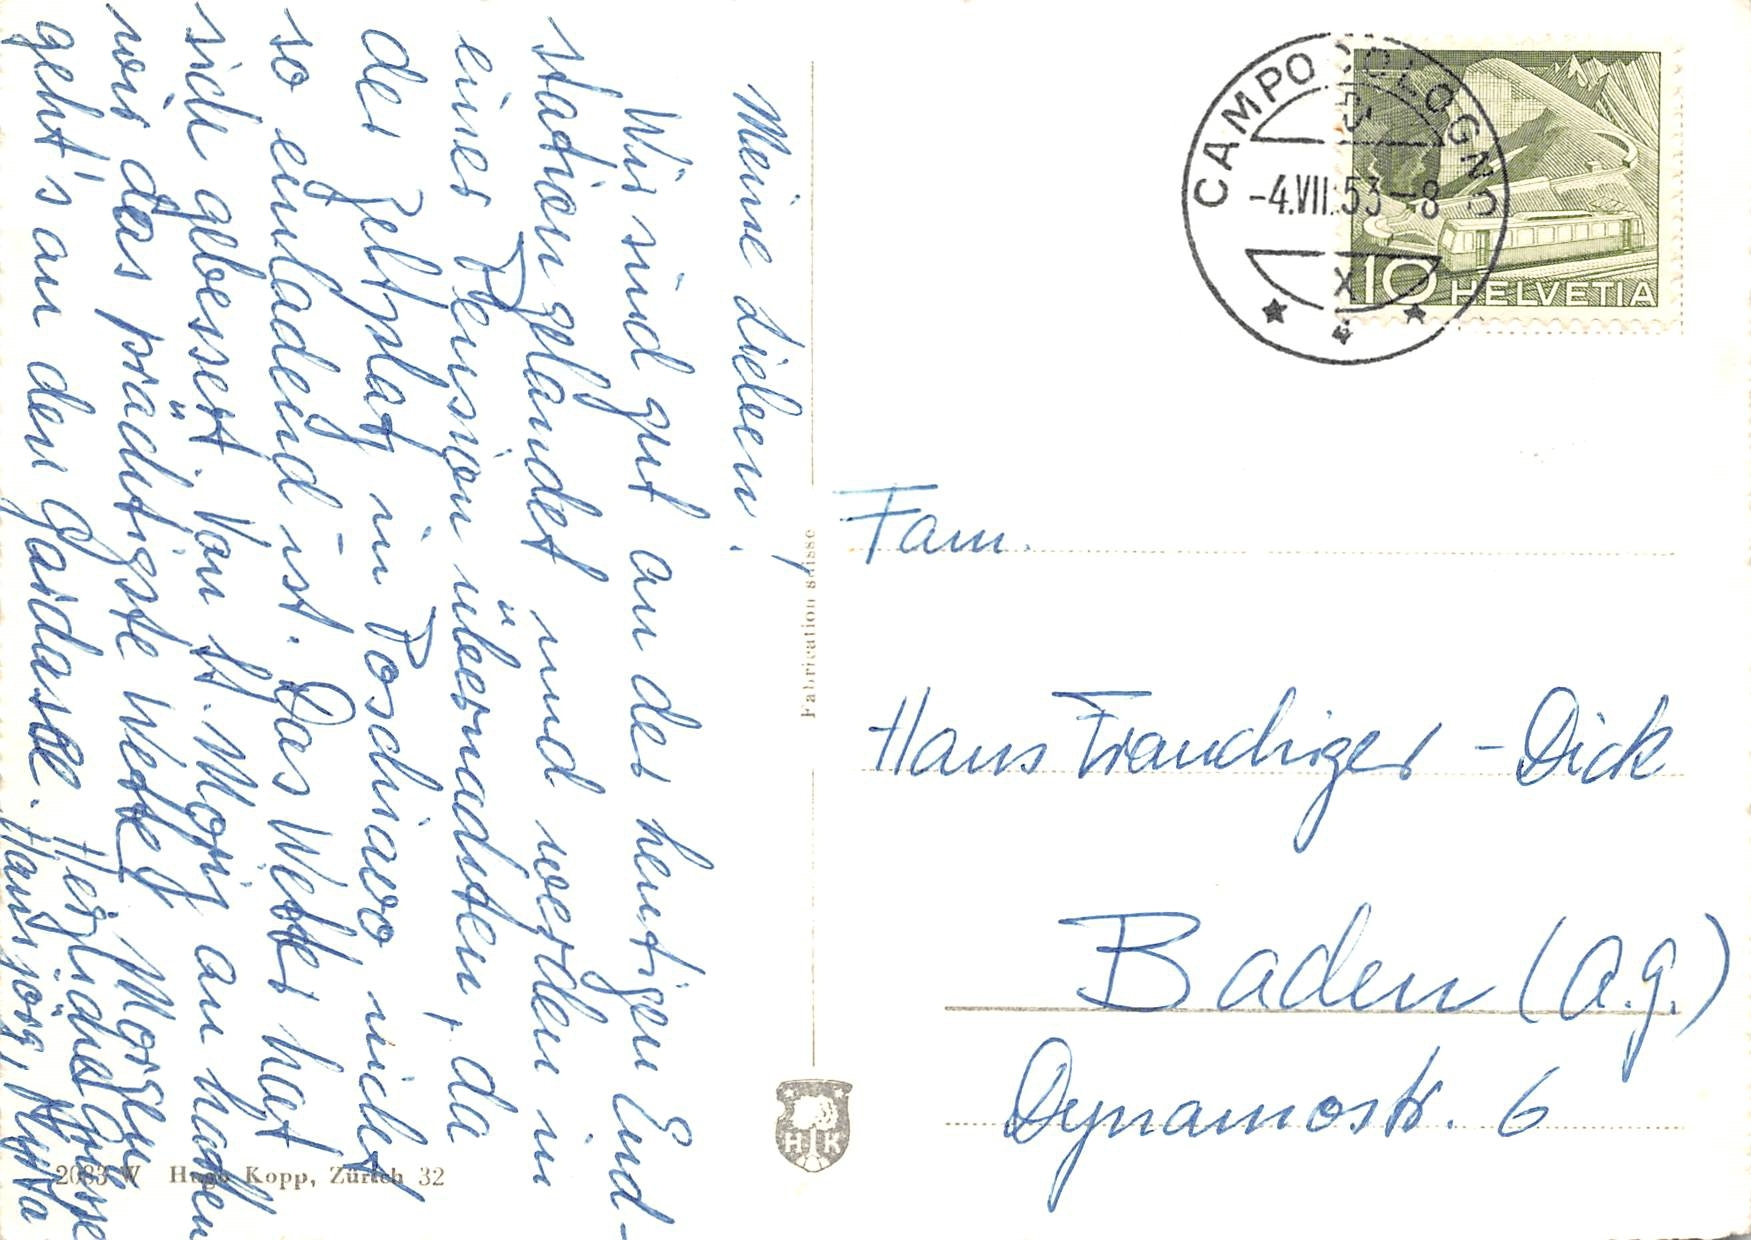 Meine Lieben!
Wir sind gut an der heutigen End-
station gelandet und werden in
einer Pension übernachten, da
der Zeltplatz in Poschiavo nicht
so einladend ist. Das Wetter hat
sich gebessert. Von St. Moriz an hatten
wir das prächtigste Wetter! Morgen
geht's an den Gardasee. Herzliche Grüsse
Hansjörg,
CAMPOCOLOGNO
-4.VII.53-8
X
10 HELVETIA
Fam.
Hans Frauchiger-Dick
Baden (A.G.)
Dynamostr. 6
Fabrication suisse
HK
2083 W Hugo Kopp, Zürich 32